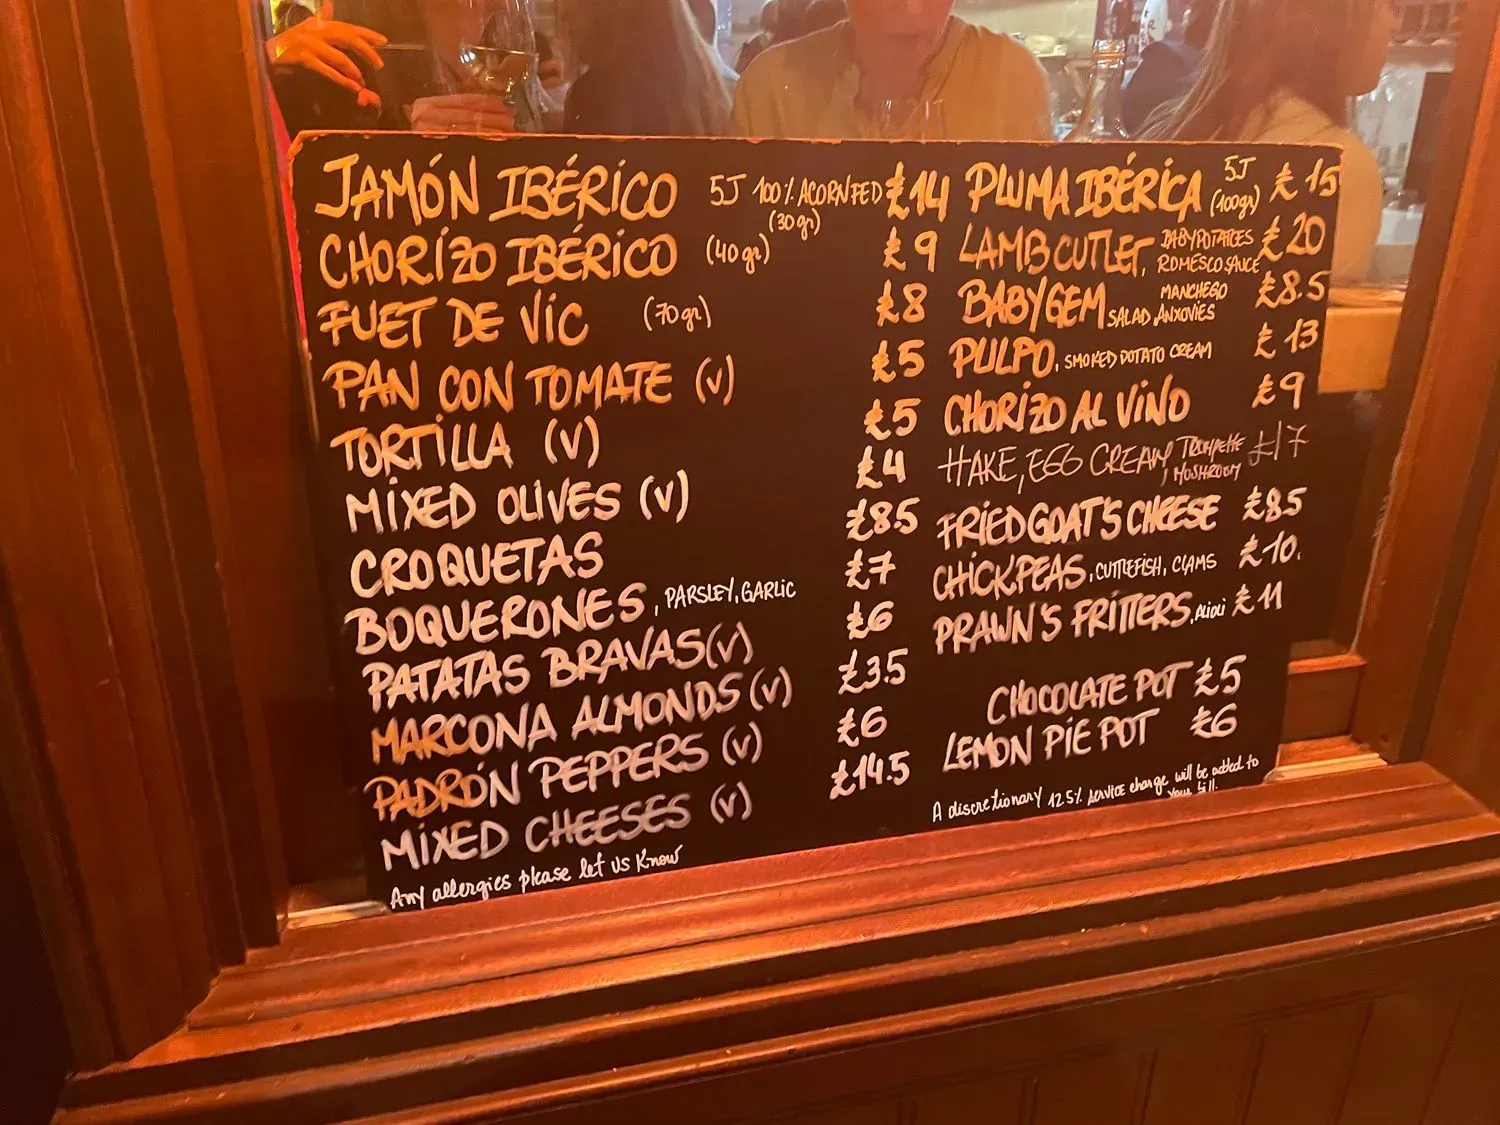 JAMÓN IBÉRICO 5J 100% ACORN FED (30gr) £14
CHORIZO IBÉRICO (40gr) £9
FUET DE VIC (70gr) £8
PAN CON TOMATE (V) £5
TORTILLA (V) £5
MIXED OLIVES (V) £4
CROQUETAS £8.5
BOQUERONES, PARSLEY, GARLIC £7
PATATAS BRAVAS (V) £6
MARCONA ALMONDS (V) £3.5
PADRÓN PEPPERS (V) £6
MIXED CHEESES (V) £14.5
Any allergies please let us know
PLUMA IBÉRICA 5J (100gr) £15
LAMB CUTLET, BABY POTATOES ROMESCO SAUCE £20
BABY GEM SALAD, MANCHEGO ANXOVIES £8.5
PULPO, SMOKED POTATO CREAM £13
CHORIZO AL VINO £9
HAKE, EGG CREAM, TROMPETTE MUSHROOM £17
FRIED GOAT'S CHEESE £8.5
CHICKPEAS, CUTTLEFISH, CLAMS £10.
PRAWN'S FRITTERS, ALIOLI £11
CHOCOLATE POT £5
LEMON PIE POT £6
A discretionary 12.5% service charge will be added to
your bill.